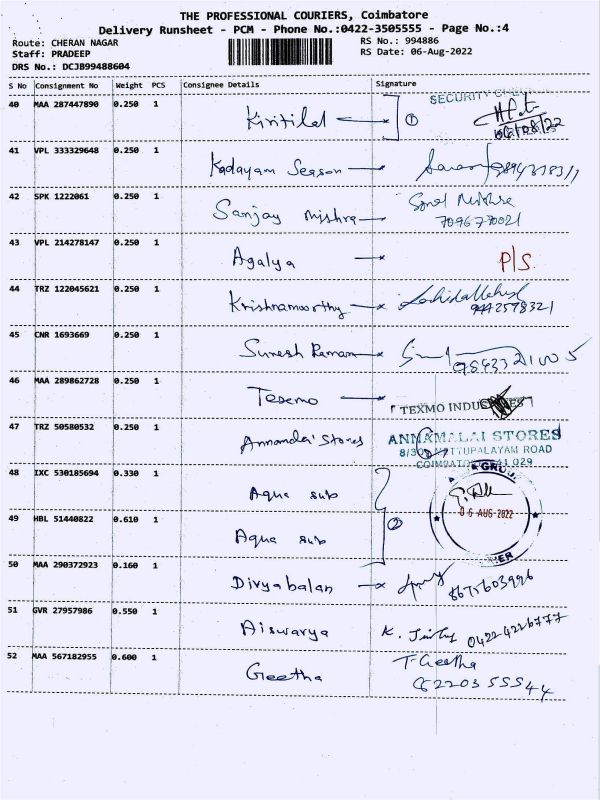 THE PROFESSIONAL COURIERS, Coimbatore
Delivery Runsheet - PCM - Phone No.:0422-3505555 - Page No.:4
Route: CHERAN NAGAR
RS No.: 994886
Staff: PRADEEP
RS Date: 06-Aug-2022
DRS No.: DCJB99488604
S No Consignment No Weight PCS Consignee Details Signature
40 MAA 287447890 0.250 1
SECURITY
① 06/08/22
41 VPL 333329648 0.250 1 Kadayam Season
42 SPK 1222061 0.250 1 Sanjay Mishra
43 VPL 214278147 0.250 1 Agalya P/S.
44 TRZ 122045621 0.250 1 Krishnamoorthy
9442578321
45 CNR 1693669 0.250 1 Suresh Raman
46 MAA 289862728 0.250 1 Texmo
TEXMO INDUSTRIES
47 TRZ 50580532 0.250 1 Annamalai Stores
ANNAMALAI STORES
METTUPALAYAM ROAD
COIMBATORE-641 029
48 IXC 530185694 0.330 1 Aqua sub
②
06 AUG 2022
49 HBL 51440822 0.610 1 Aqua sub
50 MAA 290372923 0.160 1 Divyabalan
8675603996
51 GVR 27957986 0.550 1 Aiswarya K. 0422-4226777
52 MAA 567182955 0.600 1 Geetha T. Geetha
6220355544